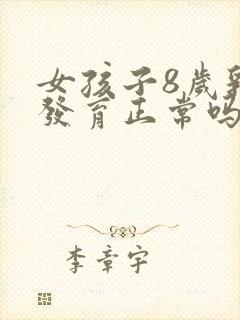 女孩子8歲
發育正常吗
李章宇